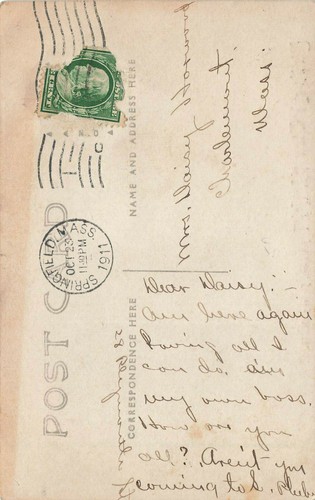 SPRINGFIELD, MASS.
OCT 23
11:30 PM
1911
POST CARD
CORRESPONDENCE HERE
NAME AND ADDRESS HERE
Mrs. Daisy
Charlemont,
Mass.
Dear Daisy:-
Am here again
loving all I
can do. am
my own boss.
How are you
all? Aren't you
coming to S.